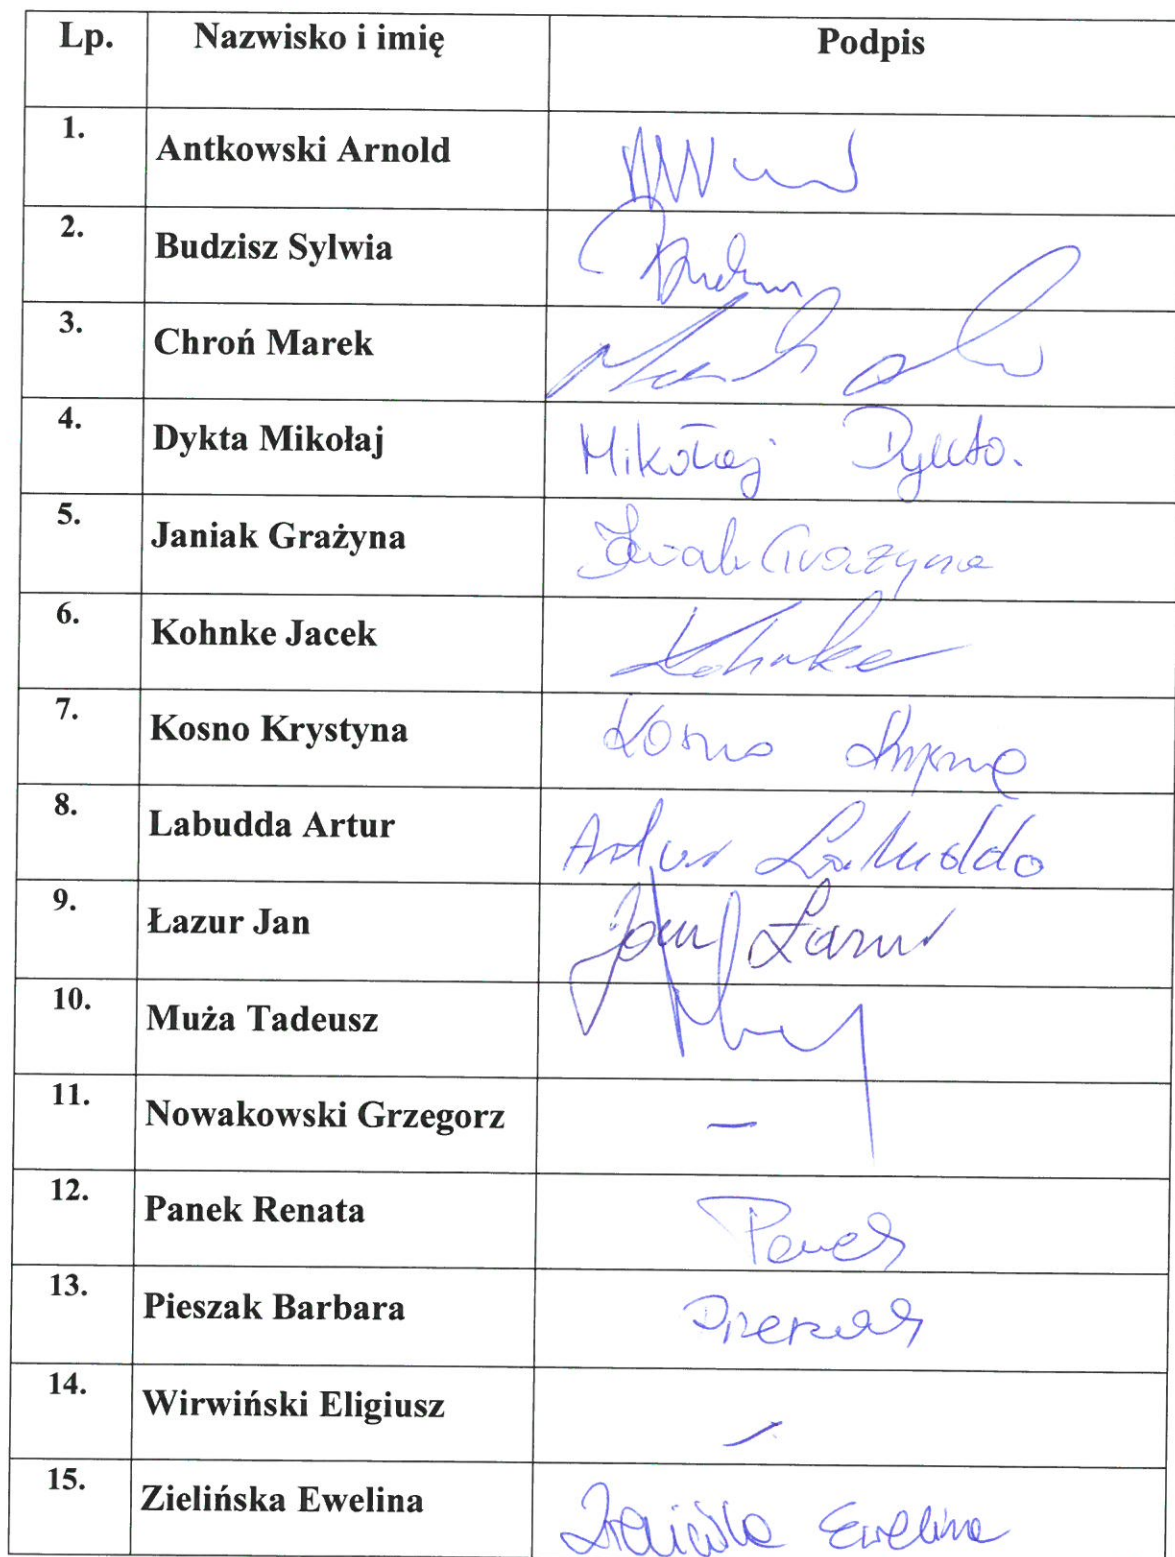 Lp. Nazwisko i imię Podpis
1. Antkowski Arnold
2. Budzisz Sylwia
3. Chroń Marek
4. Dykta Mikołaj Mikołaj Dykta.
5. Janiak Grażyna Grażyna
6. Kohnke Jacek Kohnke
7. Kosno Krystyna Kosno
8. Labudda Artur Artur Labudda
9. Łazur Jan Jan Łazur
10. Muża Tadeusz
11. Nowakowski Grzegorz –
12. Panek Renata Panek
13. Pieszak Barbara Pieszak
14. Wirwiński Eligiusz –
15. Zielińska Ewelina Zielińska Ewelina